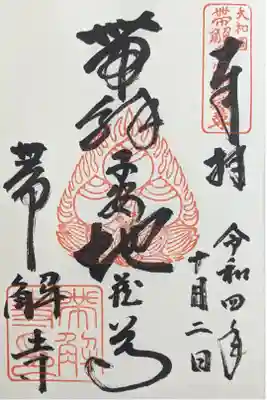 奉拝
令和四年
十月二日
帯解子安地蔵尊
帯解寺
大和国
帯解